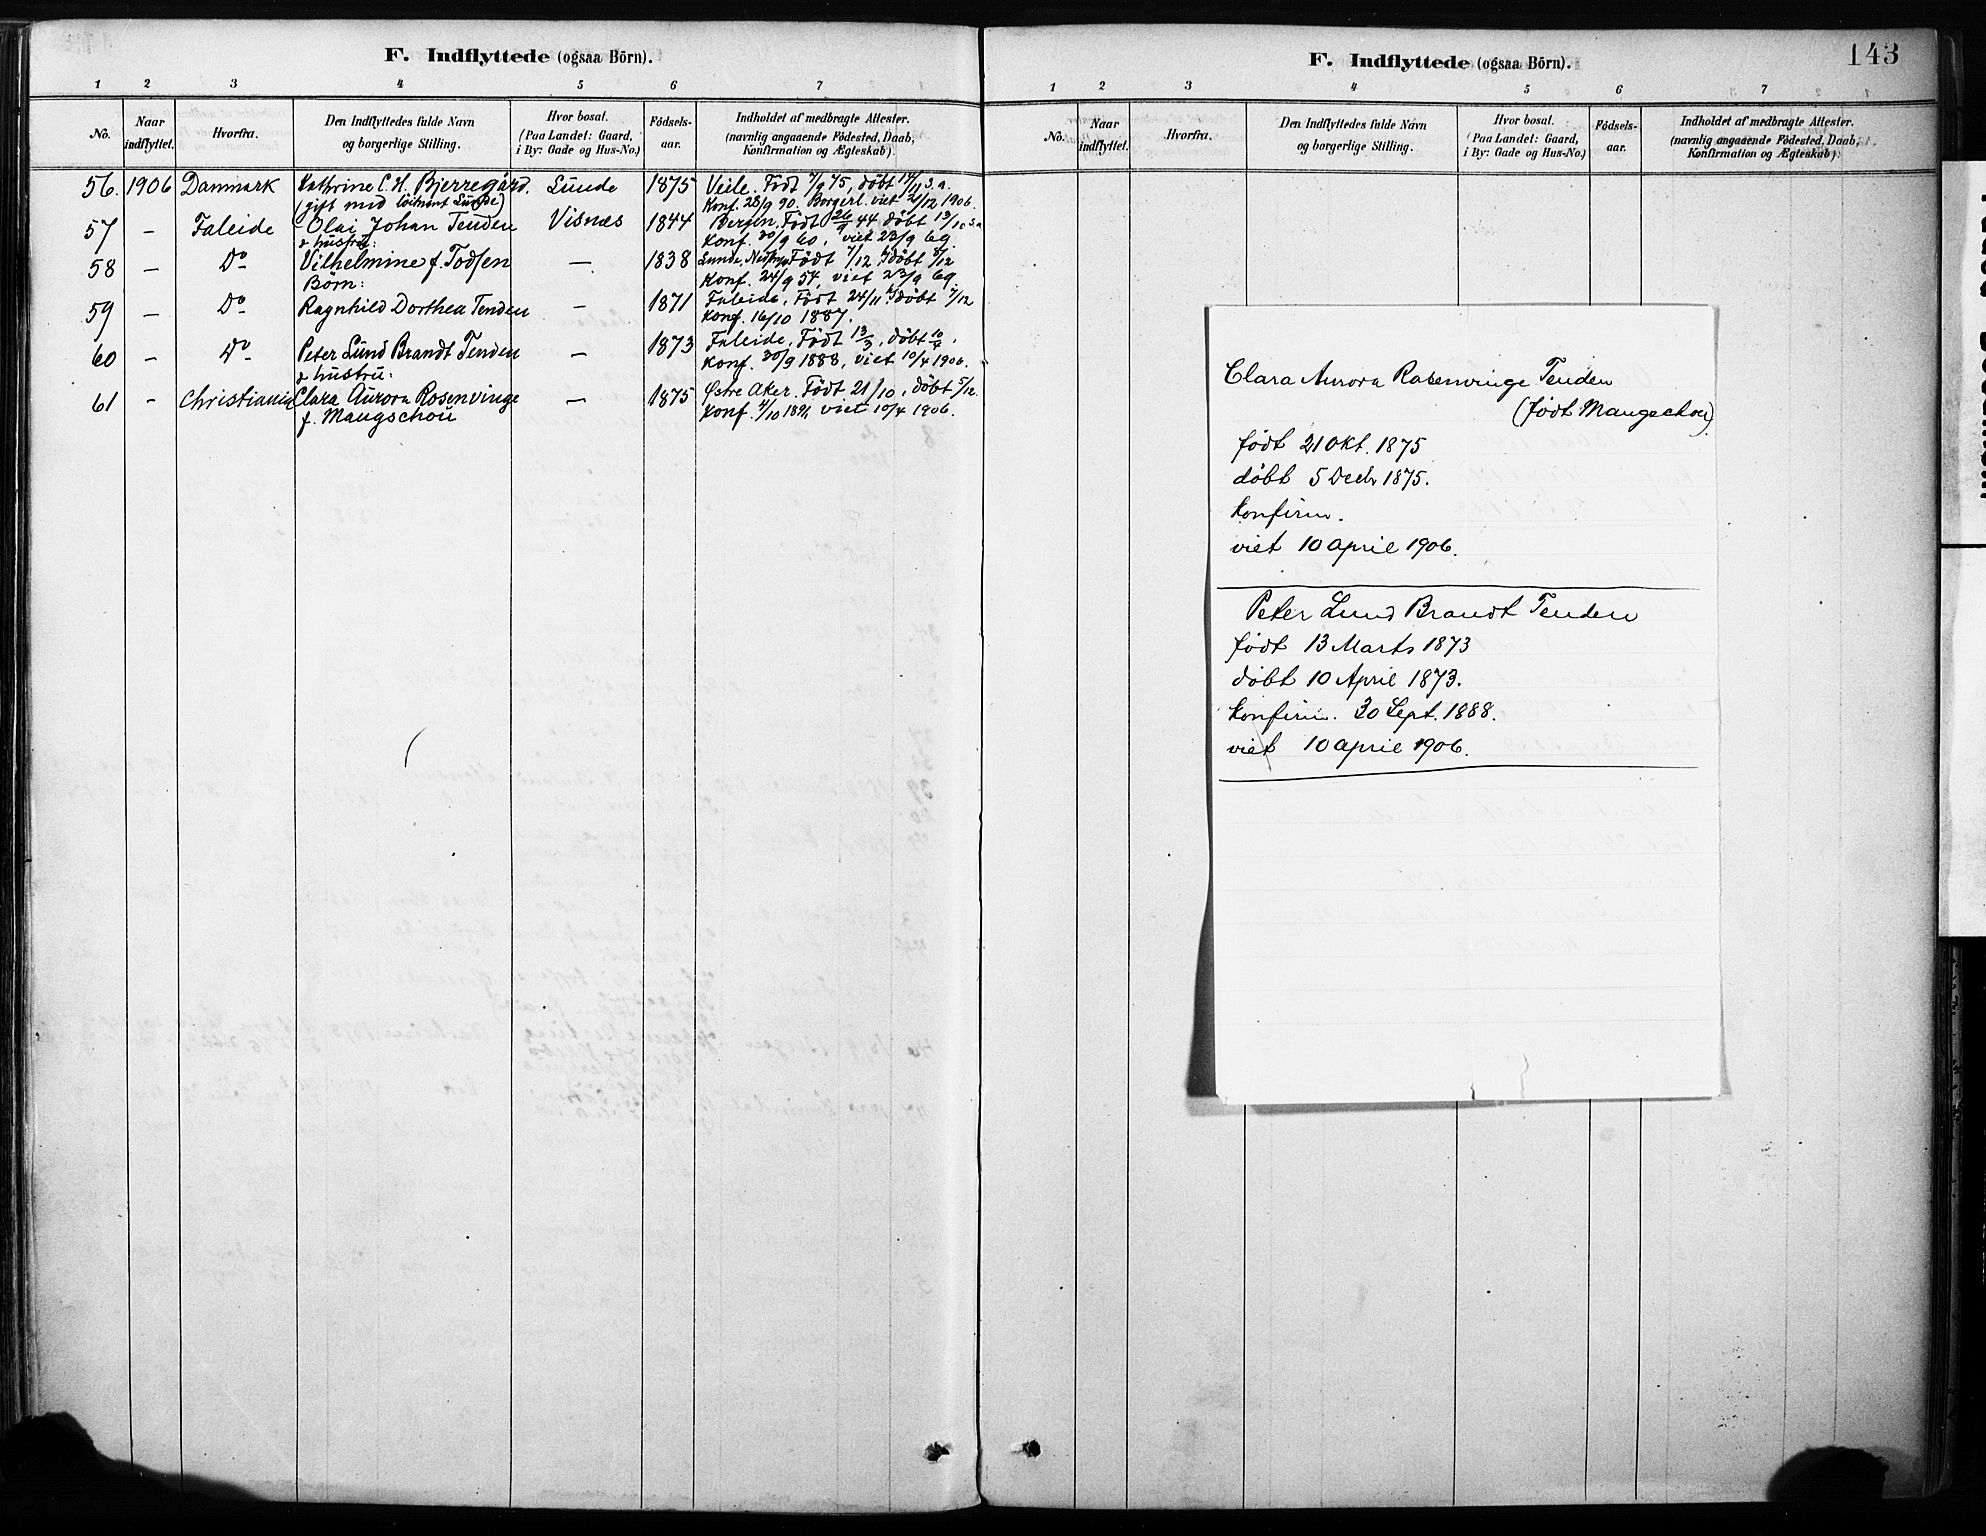 F. Indflyttede (ogsaa Börn).
1 2 3 4 5 6 7
No. Naar indflyttet. Hvorfra. Den Indflyttedes fulde Navn og borgerlige Stilling. Hvor bosat. (Paa Landet: Gaard, i By: Gade og Hus-No.) Födsels-aar. Indholdet af medbragte Attester. (navnlig angaaende Födested, Daab, Konfirmation og Ægteskab)
56. 1906 Danmark Kathrine C. H. Bjerregård. Lunde 1875 Veile. Födt 7/9 75, döbt 14/11 s.a.
(gift med löitnant Lunde) Konf. 28/9 90. Borgerl. viet 21/12 1906.
57 – Faleide Olai Johan Tenden Visnæs 1844 Bergen. Födt 26/9 44 döbt 13/10 s.a
& hustru: Konf. 30/9 60, viet 23/9 69.
58 – Do Vilhelmine f. Todsen – 1838 Lunde, Födt 7/12 döbt 8/12
Börn: Konf. 24/9 54, viet 23/9 69.
59 – Do Ragnhild Dorthea Tenden – 1871 Faleide, Födt 24/11 döbt 7/12
Konf. 16/10 1887.
60 – Do Peter Lund Brandt Tenden – 1873 Faleide. Födt 13/3, döbt 10/4.
& hustru: Konf. 30/9 1888, viet 10/4 1906.
61 - Christiania Clara Aurora Rosenvinge – 1875 Østre Aker. Födt 21/10, döbt 5/12.
f. Maugschou Konf. 4/10 1891, viet 10/4 1906.
143
F. Indflyttede (ogsaa Börn).
1 2 3 4 5 6 7
No. Naar indflyttet. Hvorfra. Den Indflyttedes fulde Navn og borgerlige Stilling. Hvor bosat. (Paa Landet: Gaard, i By: Gade og Hus-No.) Födsels-aar. Indholdet af medbragte Attester. (navnlig angaaende Födested, Daab, Konfirmation og Ægteskab)
Clara Aurora Rosenvinge Tenden
(født Maugschou)
født 21 Okt. 1875
döbt 5 Decbr 1875.
Konfirm.
viet 10 april 1906.
Peter Lund Brandt Tenden
født 13 Marts 1873
döbt 10 April 1873.
Konfirm. 30 Sept. 1888.
viet 10 april 1906.